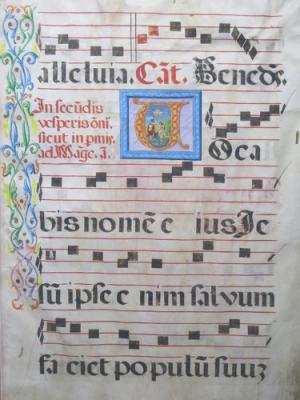 alleluia. Cāt. Benedc̄.
In secūdis
vesperis ōni.
sicut in pmis.
ad Mage. ā.
VOca
bis nomē e ius Je
sū ipse e nim salvum
fa ciet populū suuz